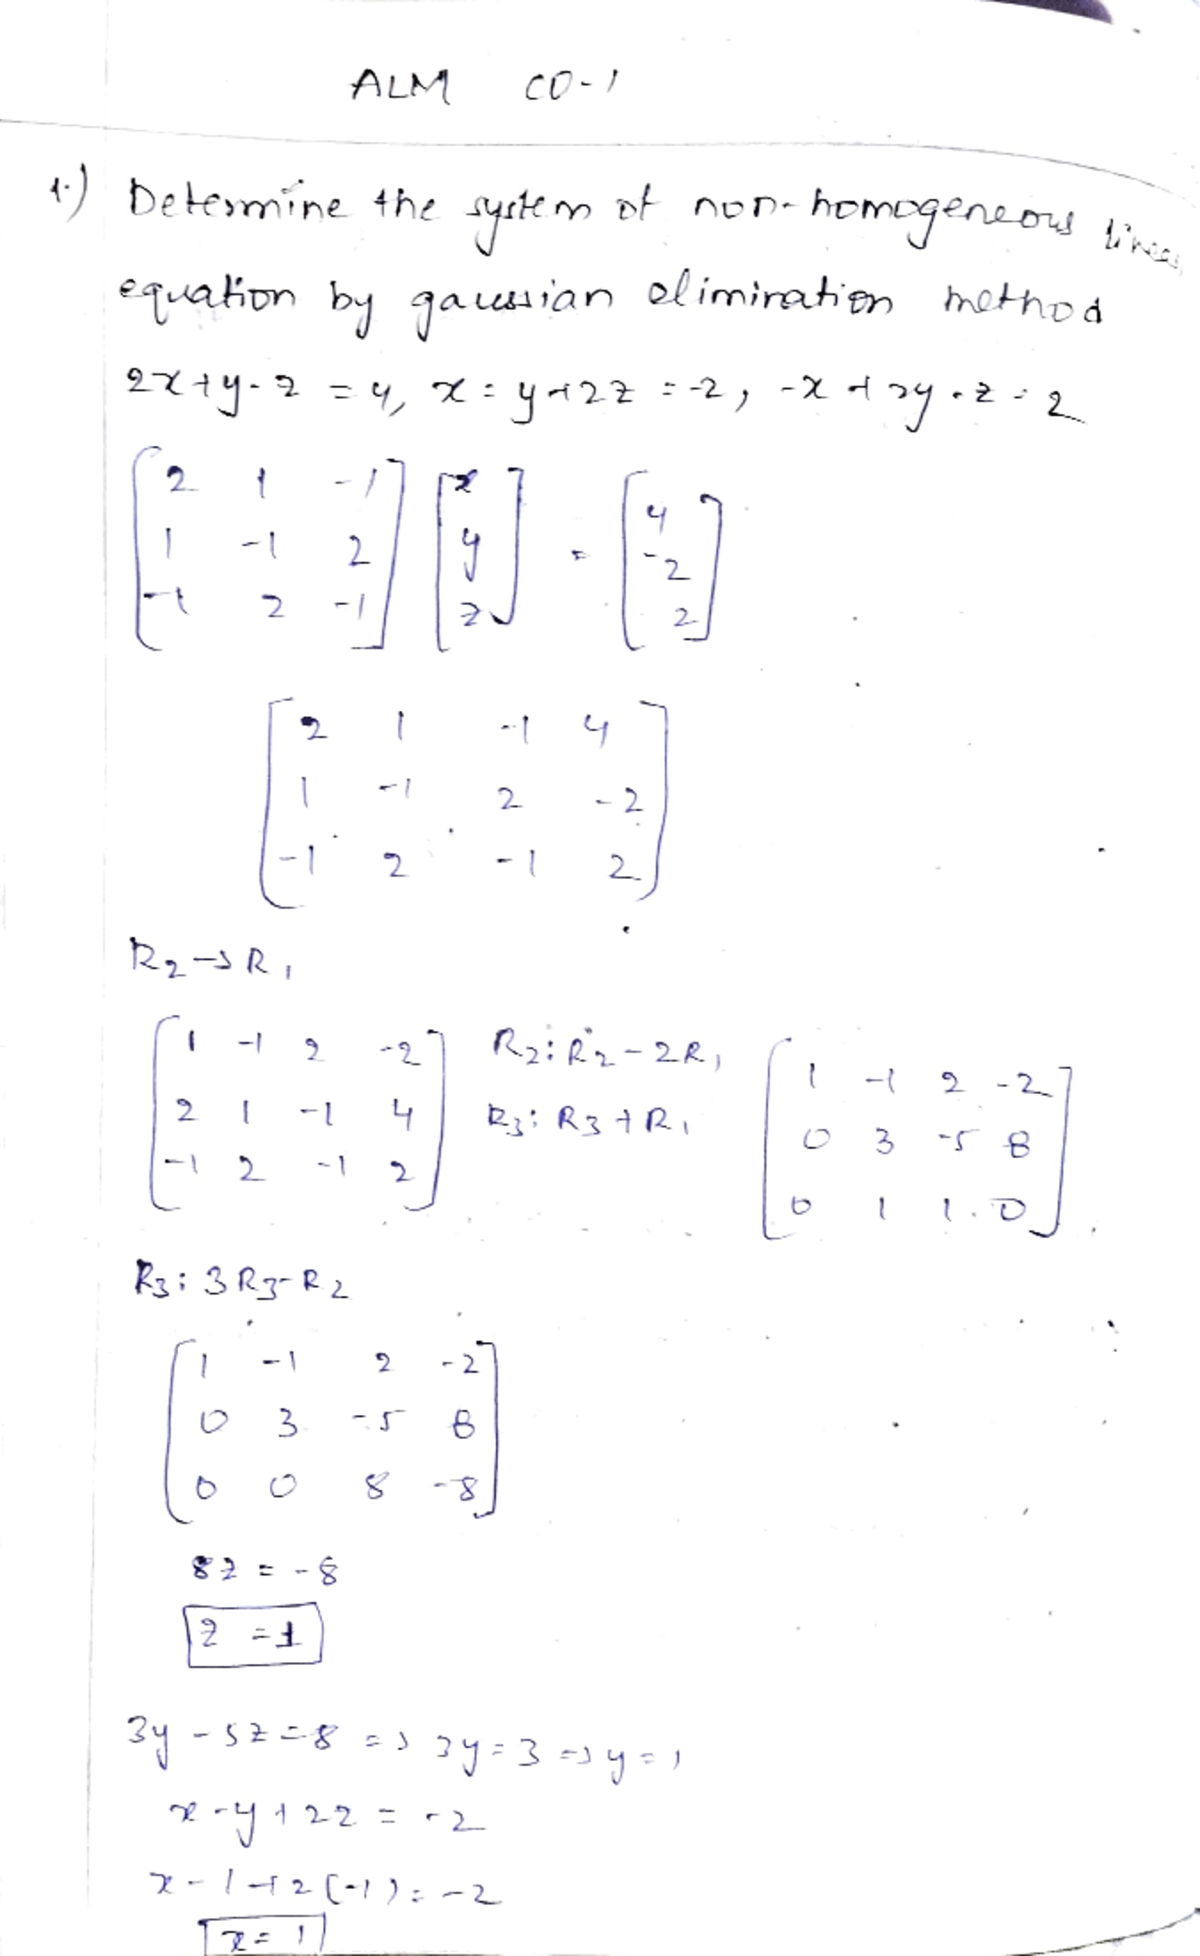 ALM CO-1
1.) Determine the system of non-homogeneous linear
equation by gaussian elimination method
2x+y-z = 4, x=y+2z = -2, -x+2y-z=2
[2 1 -1] [x] = [4]
[1 -1 2] [y] [-2]
[-1 2 -1] [z] [2]
[2 1 -1 4]
[1 -1 2 -2]
[-1 2 -1 2]
R2→R1
[1 -1 2 -2] R2: R2-2R1 [1 -1 2 -2]
[2 1 -1 4] R3: R3+R1 [0 3 -5 8]
[-1 2 -1 2] [0 1 1 0]
R3: 3R3-R2
[1 -1 2 -2]
[0 3 -5 8]
[0 0 8 -8]
8z = -8
z = 1
3y-5z=8 => 3y=3 => y=1
x-y+2z = -2
x-1+2(-1)=-2
x=1